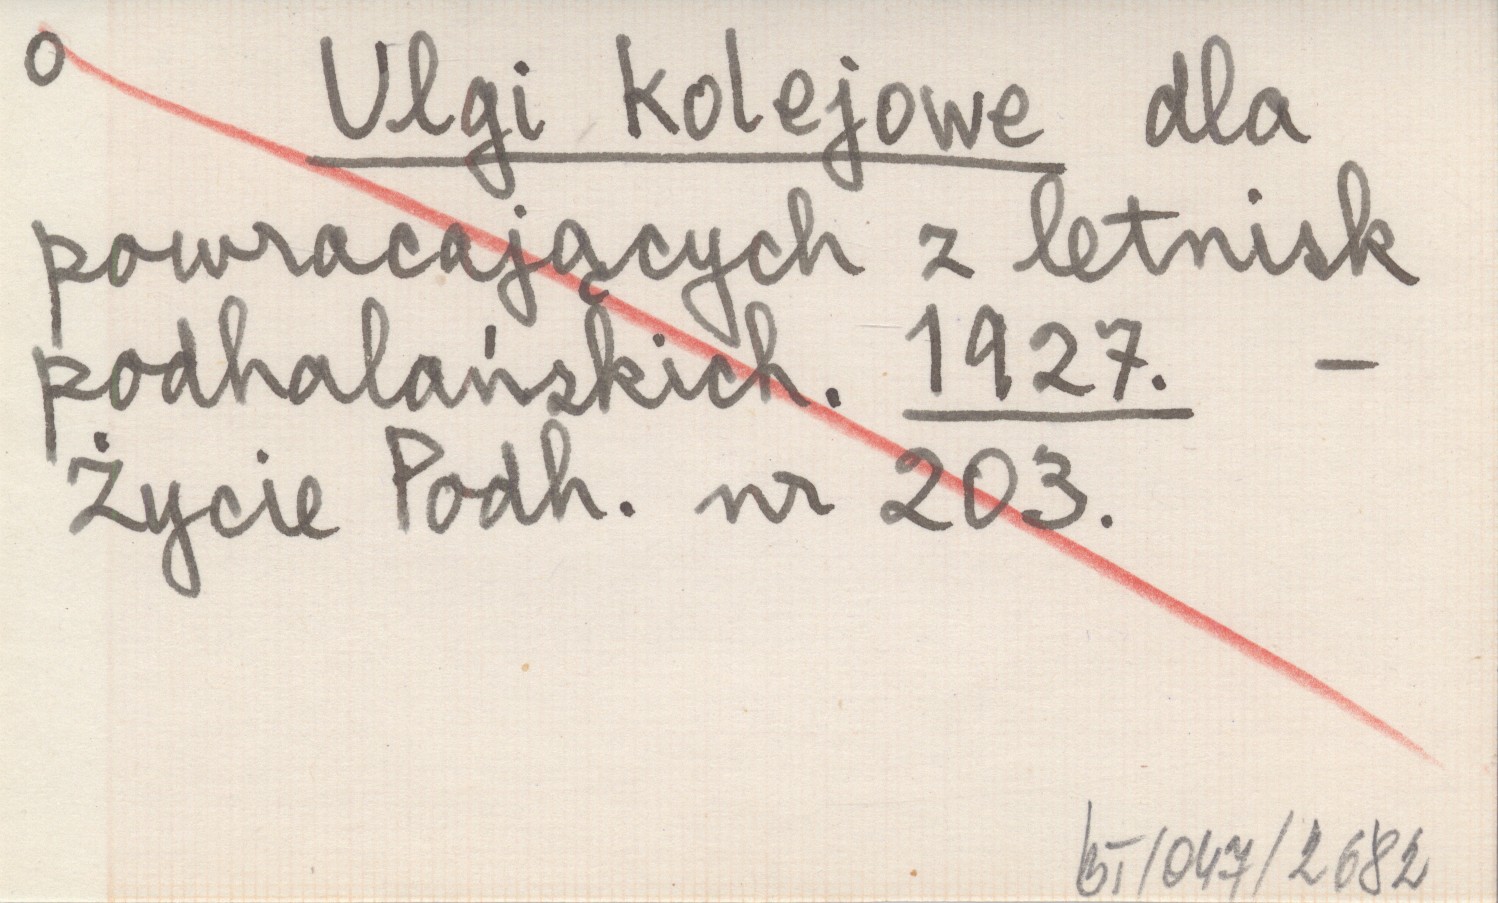 o Ulgi kolejowe dla
powracających z letnisk
podhalańskich. 1927. –
Życie Podh. nr 203.
/047/2682